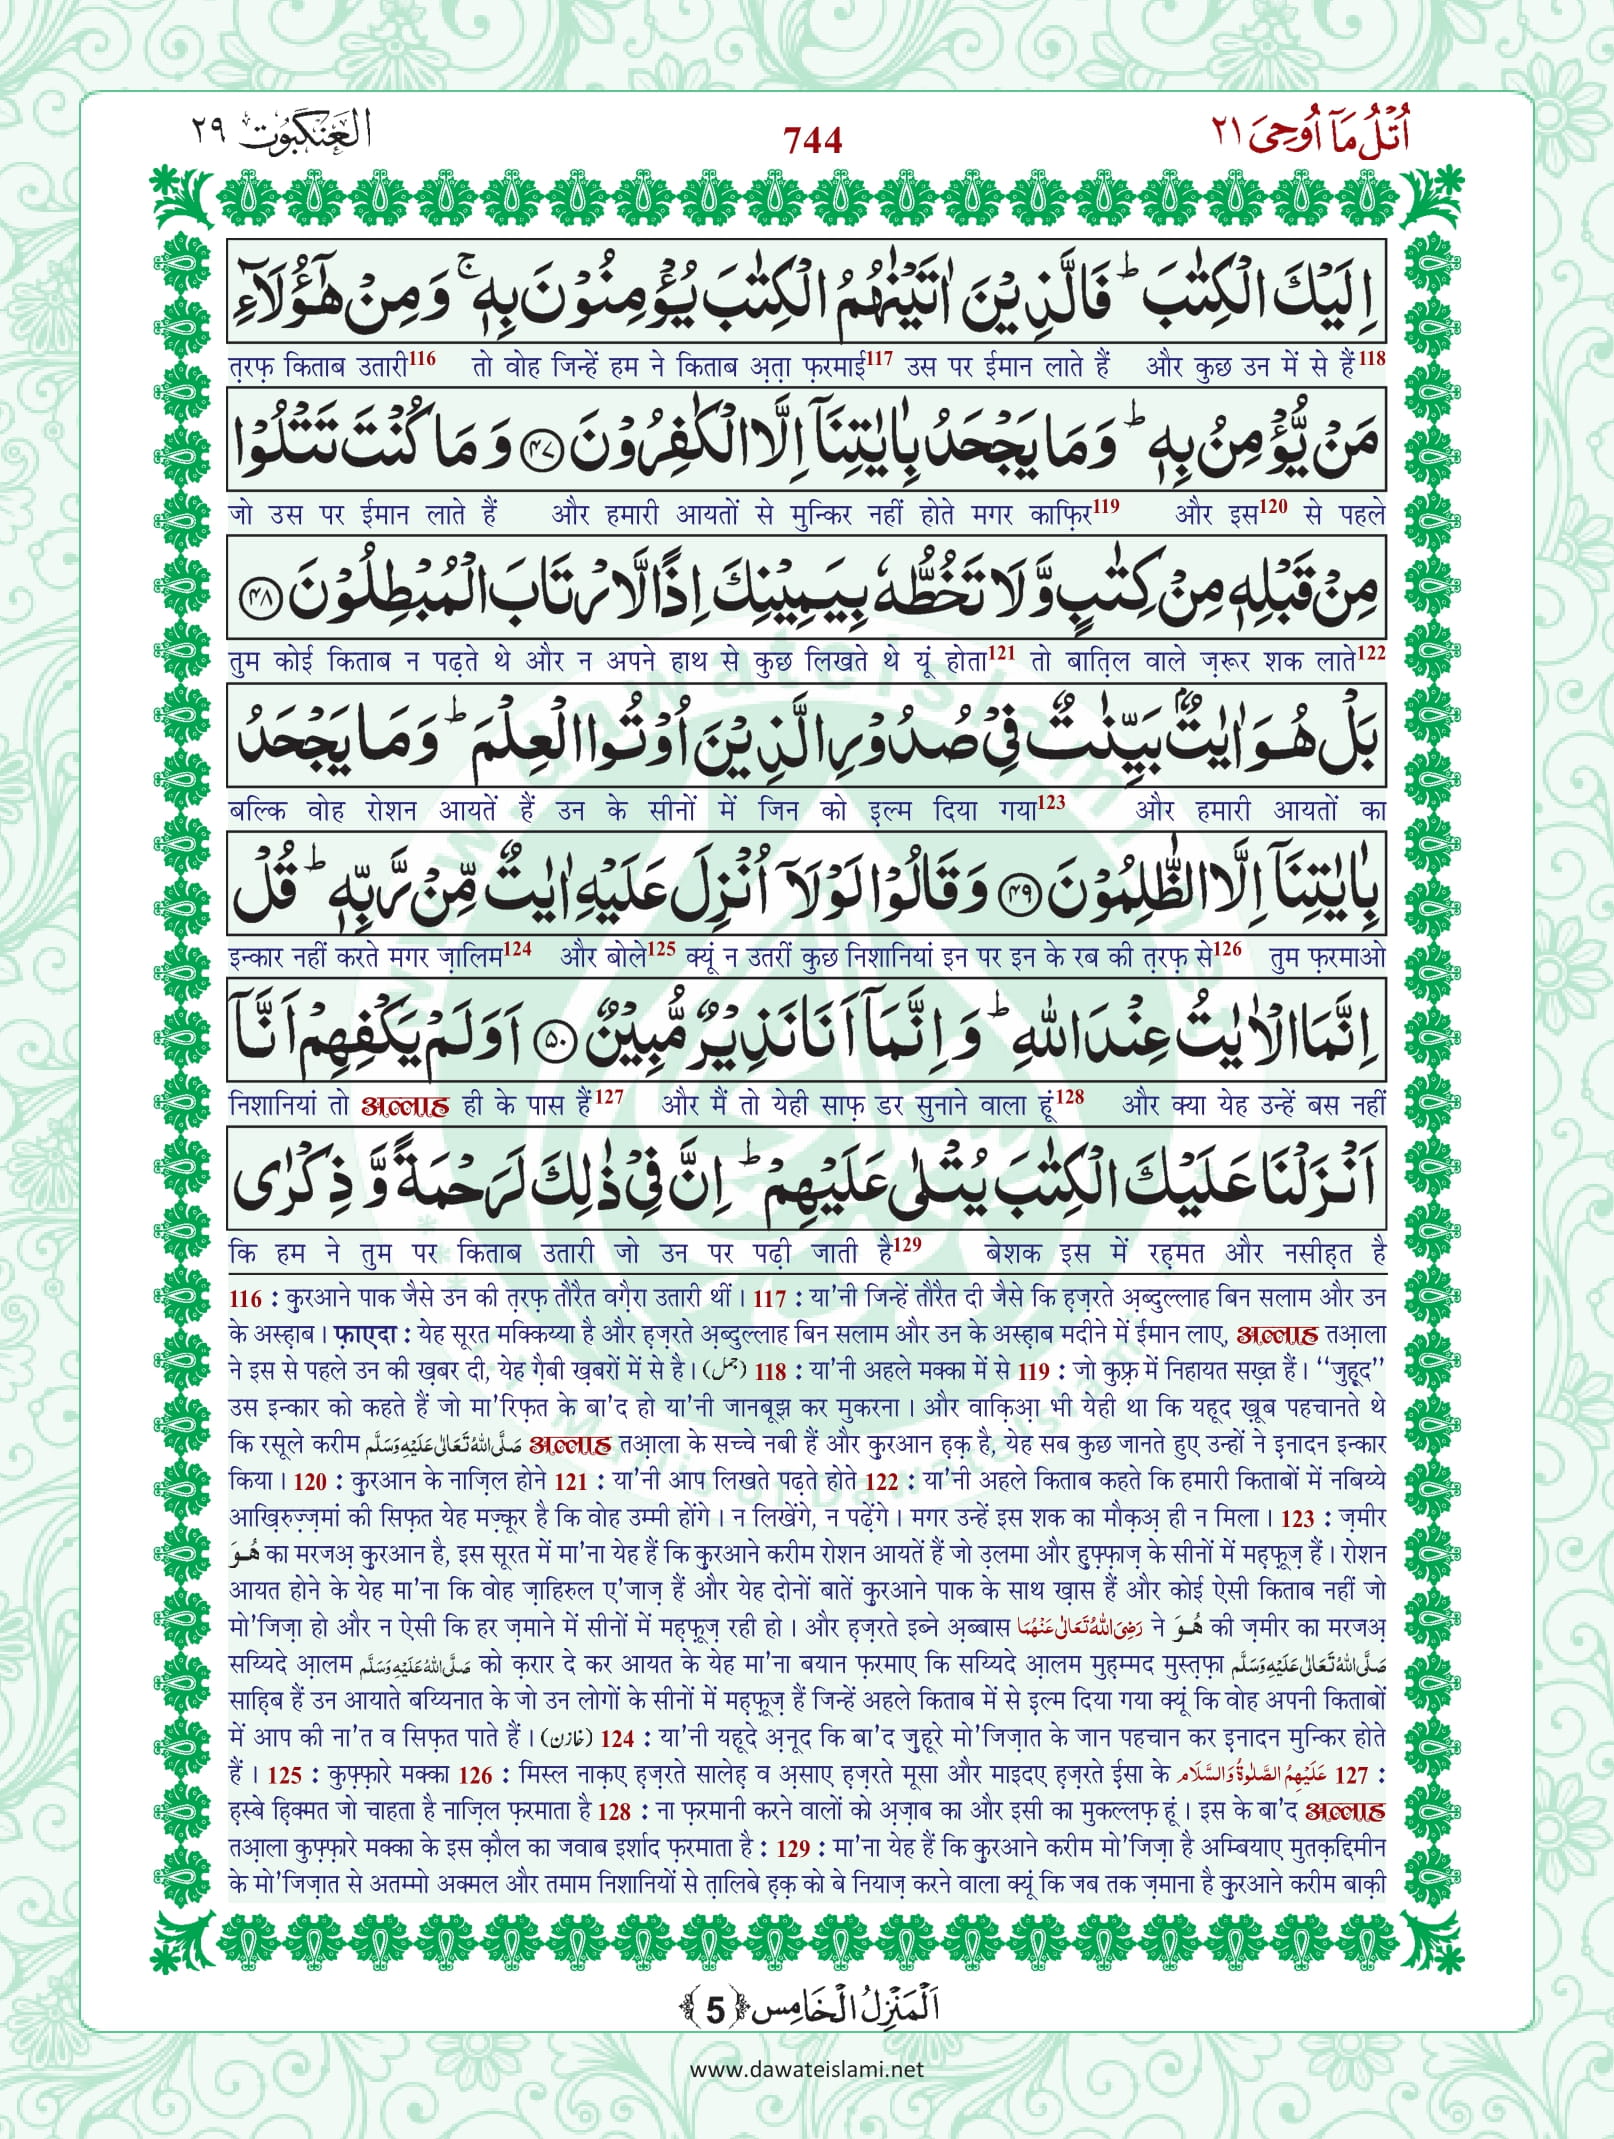 اُتْلُ مَاۤ اُوْحِیَ ۲۱ 744 الۡعَنْكَبُوْت ۲۹
اِلَیْكَ الْكِتٰبَ ؕ فَالَّذِیْنَ اٰتَیْنٰهُمُ الْكِتٰبَ یُؤْمِنُوْنَ بِهٖ ۚ وَ مِنْ هٰۤؤُلَآءِ
त़रफ़ किताब उतारी116 तो वोह जिन्हें हम ने किताब अ़त़ा फ़रमाई117 उस पर ईमान लाते हैं और कुछ उन में से हैं118
مَنْ یُّؤْمِنُ بِهٖ ؕ وَ مَا یَجْحَدُ بِاٰیٰتِنَاۤ اِلَّا الْكٰفِرُوْنَ ﴿۴۷﴾ وَ مَا كُنْتَ تَتْلُوْا
जो उस पर ईमान लाते हैं और हमारी आयतों से मुन्किर नहीं होते मगर काफ़िर119 और इस120 से पहले
مِنْ قَبْلِهٖ مِنْ كِتٰبٍ وَّ لَا تَخُطُّهٗ بِیَمِیْنِكَ اِذًا لَّارْتَابَ الْمُبْطِلُوْنَ ﴿۴۸﴾
तुम कोई किताब न पढ़ते थे और न अपने हाथ से कुछ लिखते थे यूं होता121 तो बात़िल वाले ज़रूर शक लाते122
بَلْ هُوَ اٰیٰتٌۢ بَیِّنٰتٌ فِیْ صُدُوْرِ الَّذِیْنَ اُوْتُوا الْعِلْمَ ؕ وَ مَا یَجْحَدُ
बल्कि वोह रोशन आयतें हैं उन के सीनों में जिन को इल्म दिया गया123 और हमारी आयतों का
بِاٰیٰتِنَاۤ اِلَّا الظّٰلِمُوْنَ ﴿۴۹﴾ وَ قَالُوْا لَوْلَاۤ اُنْزِلَ عَلَیْهِ اٰیٰتٌ مِّنْ رَّبِّهٖ ؕ قُلْ
इन्कार नहीं करते मगर ज़ालिम124 और बोले125 क्यूं न उतरीं कुछ निशानियां इन पर इन के रब की त़रफ़ से126 तुम फ़रमाओ
اِنَّمَا الْاٰیٰتُ عِنْدَ اللّٰهِ ؕ وَ اِنَّمَاۤ اَنَا نَذِیْرٌ مُّبِیْنٌ ﴿۵۰﴾ اَوَ لَمْ یَكْفِهِمْ اَنَّاۤ
निशानियां तो अल्लाह ही के पास हैं127 और मैं तो येही साफ़ डर सुनाने वाला हूं128 और क्या येह उन्हें बस नहीं
اَنْزَلْنَا عَلَیْكَ الْكِتٰبَ یُتْلٰى عَلَیْهِمْ ؕ اِنَّ فِیْ ذٰلِكَ لَرَحْمَةً وَّ ذِكْرٰى
कि हम ने तुम पर किताब उतारी जो उन पर पढ़ी जाती है129 बेशक इस में रह़मत और नसीह़त है
116 : क़ुरआने पाक जैसे उन की त़रफ़ तौरैत वग़ैरा उतारी थीं। 117 : या'नी जिन्हें तौरैत दी जैसे कि ह़ज़रते अ़ब्दुल्लाह बिन सलाम और उन
के अस्ह़ाब। फ़ाएदा : येह सूरत मक्किय्या है और ह़ज़रते अ़ब्दुल्लाह बिन सलाम और उन के अस्ह़ाब मदीने में ईमान लाए, अल्लाह तआ़ला
ने इस से पहले उन की ख़बर दी, येह ग़ैबी ख़बरों में से है। (جمل) 118 : या'नी अहले मक्का में से 119 : जो कुफ़्र में निहायत सख़्त हैं। ‘‘जुह़ूद’’
उस इन्कार को कहते हैं जो मा'रिफ़त के बा'द हो या'नी जानबूझ कर मुकरना। और वाक़िआ़ भी येही था कि यहूद ख़ूब पहचानते थे
कि रसूले करीम صَلَّى اللهُ تَعَالٰى عَلَيْهِ وَسَلَّم अल्लाह तआ़ला के सच्चे नबी हैं और क़ुरआन ह़क़ है, येह सब कुछ जानते हुए उन्हों ने इ़नादन इन्कार
किया। 120 : क़ुरआन के नाज़िल होने 121 : या'नी आप लिखते पढ़ते होते 122 : या'नी अहले किताब कहते कि हमारी किताबों में नबिय्ये
आख़िरुज़्ज़मां की सिफ़त येह मज़्कूर है कि वोह उम्मी होंगे। न लिखेंगे, न पढ़ेंगे। मगर उन्हें इस शक का मौक़अ़ ही न मिला। 123 : ज़मीर
هُوَ का मरजअ़ क़ुरआन है, इस सूरत में मा'ना येह हैं कि क़ुरआने करीम रोशन आयतें हैं जो उ़लमा और हुफ़्फ़ाज़ के सीनों में मह़फ़ूज़ हैं। रोशन
आयत होने के येह मा'ना कि वोह ज़ाहिरुल ए'जाज़ हैं और येह दोनों बातें क़ुरआने पाक के साथ ख़ास हैं और कोई ऐसी किताब नहीं जो
मो'जिज़ा हो और न ऐसी कि हर ज़माने में सीनों में मह़फ़ूज़ रही हो। और ह़ज़रते इब्ने अ़ब्बास رَضِىَ اللهُ تَعَالٰى عَنْهُمَا ने هُوَ की ज़मीर का मरजअ़
सय्यिदे आ़लम صَلَّى اللهُ عَلَيْهِ وَسَلَّم को क़रार दे कर आयत के येह मा'ना बयान फ़रमाए कि सय्यिदे आ़लम मुह़म्मद मुस्त़फ़ा صَلَّى اللهُ تَعَالٰى عَلَيْهِ وَسَلَّم
साह़िब हैं उन आयाते बय्यिनात के जो उन लोगों के सीनों में मह़फ़ूज़ हैं जिन्हें अहले किताब में से इल्म दिया गया क्यूं कि वोह अपनी किताबों
में आप की ना'त व सिफ़त पाते हैं। (خازن) 124 : या'नी यहूदे अ़नूद कि बा'द ज़ुहूरे मो'जिज़ात के जान पहचान कर इ़नादन मुन्किर होते
हैं। 125 : कुफ़्फ़ारे मक्का 126 : मिस्ल नाक़ए ह़ज़रते सालेह़ व अ़साए ह़ज़रते मूसा और माइदए ह़ज़रते ईसा के عَلَيْهِمُ الصَّلٰوةُ وَالسَّلَام 127 :
ह़स्बे ह़िक्मत जो चाहता है नाज़िल फ़रमाता है 128 : ना फ़रमानी करने वालों को अ़ज़ाब का और इसी का मुकल्लफ़ हूं। इस के बा'द अल्लाह
तआ़ला कुफ़्फ़ारे मक्का के इस क़ौल का जवाब इर्शाद फ़रमाता है : 129 : मा'ना येह हैं कि क़ुरआने करीम मो'जिज़ा है अम्बियाए मुतक़द्दिमीन
के मो'जिज़ात से अतम्मो अक्मल और तमाम निशानियों से त़ालिबे ह़क़ को बे नियाज़ करने वाला क्यूं कि जब तक ज़माना है क़ुरआने करीम बाक़ी
اَلْمَنْزِلُ الْخَامِس ﴿5﴾
www.dawateislami.net